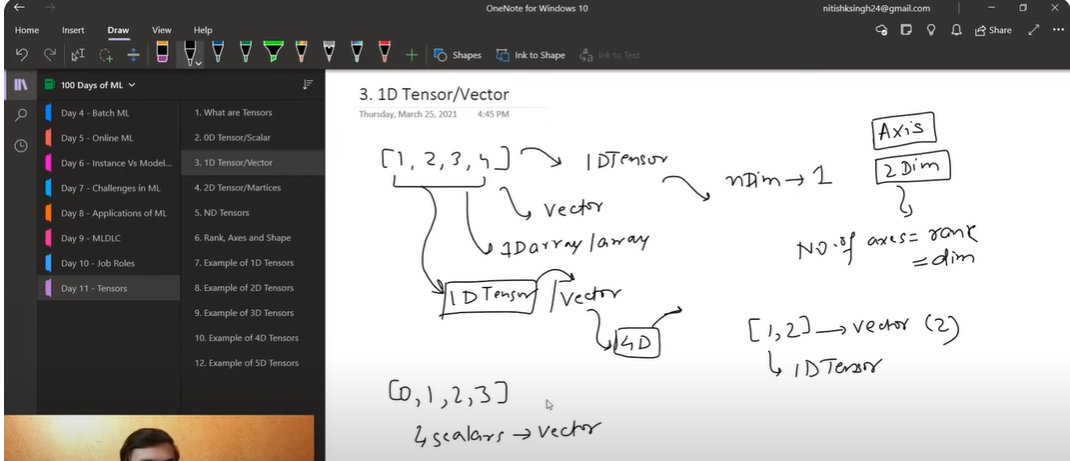 OneNote for Windows 10
nitishksingh24@gmail.com
Home Insert Draw View Help
Shapes Ink to Shape Ink to Text Share
100 Days of ML
Day 4 - Batch ML
Day 5 - Online ML
Day 6 - Instance Vs Model...
Day 7 - Challenges in ML
Day 8 - Applications of ML
Day 9 - MLDLC
Day 10 - Job Roles
Day 11 - Tensors
1. What are Tensors
2. 0D Tensor/Scalar
3. 1D Tensor/Vector
4. 2D Tensor/Martices
5. ND Tensors
6. Rank, Axes and Shape
7. Example of 1D Tensors
8. Example of 2D Tensors
9. Example of 3D Tensors
10. Example of 4D Tensors
12. Example of 5D Tensors
3. 1D Tensor/Vector
Thursday, March 25, 2021 4:45 PM
[1, 2, 3, 4] 1DTensor
nDim → 1
Vector
1Darray/array
1D Tensor /Vector
4D
[0, 1, 2, 3]
4 scalars → vector
Axis
2 Dim
No. of axes = rank
= dim
[1, 2] → vector (2)
1D Tensor